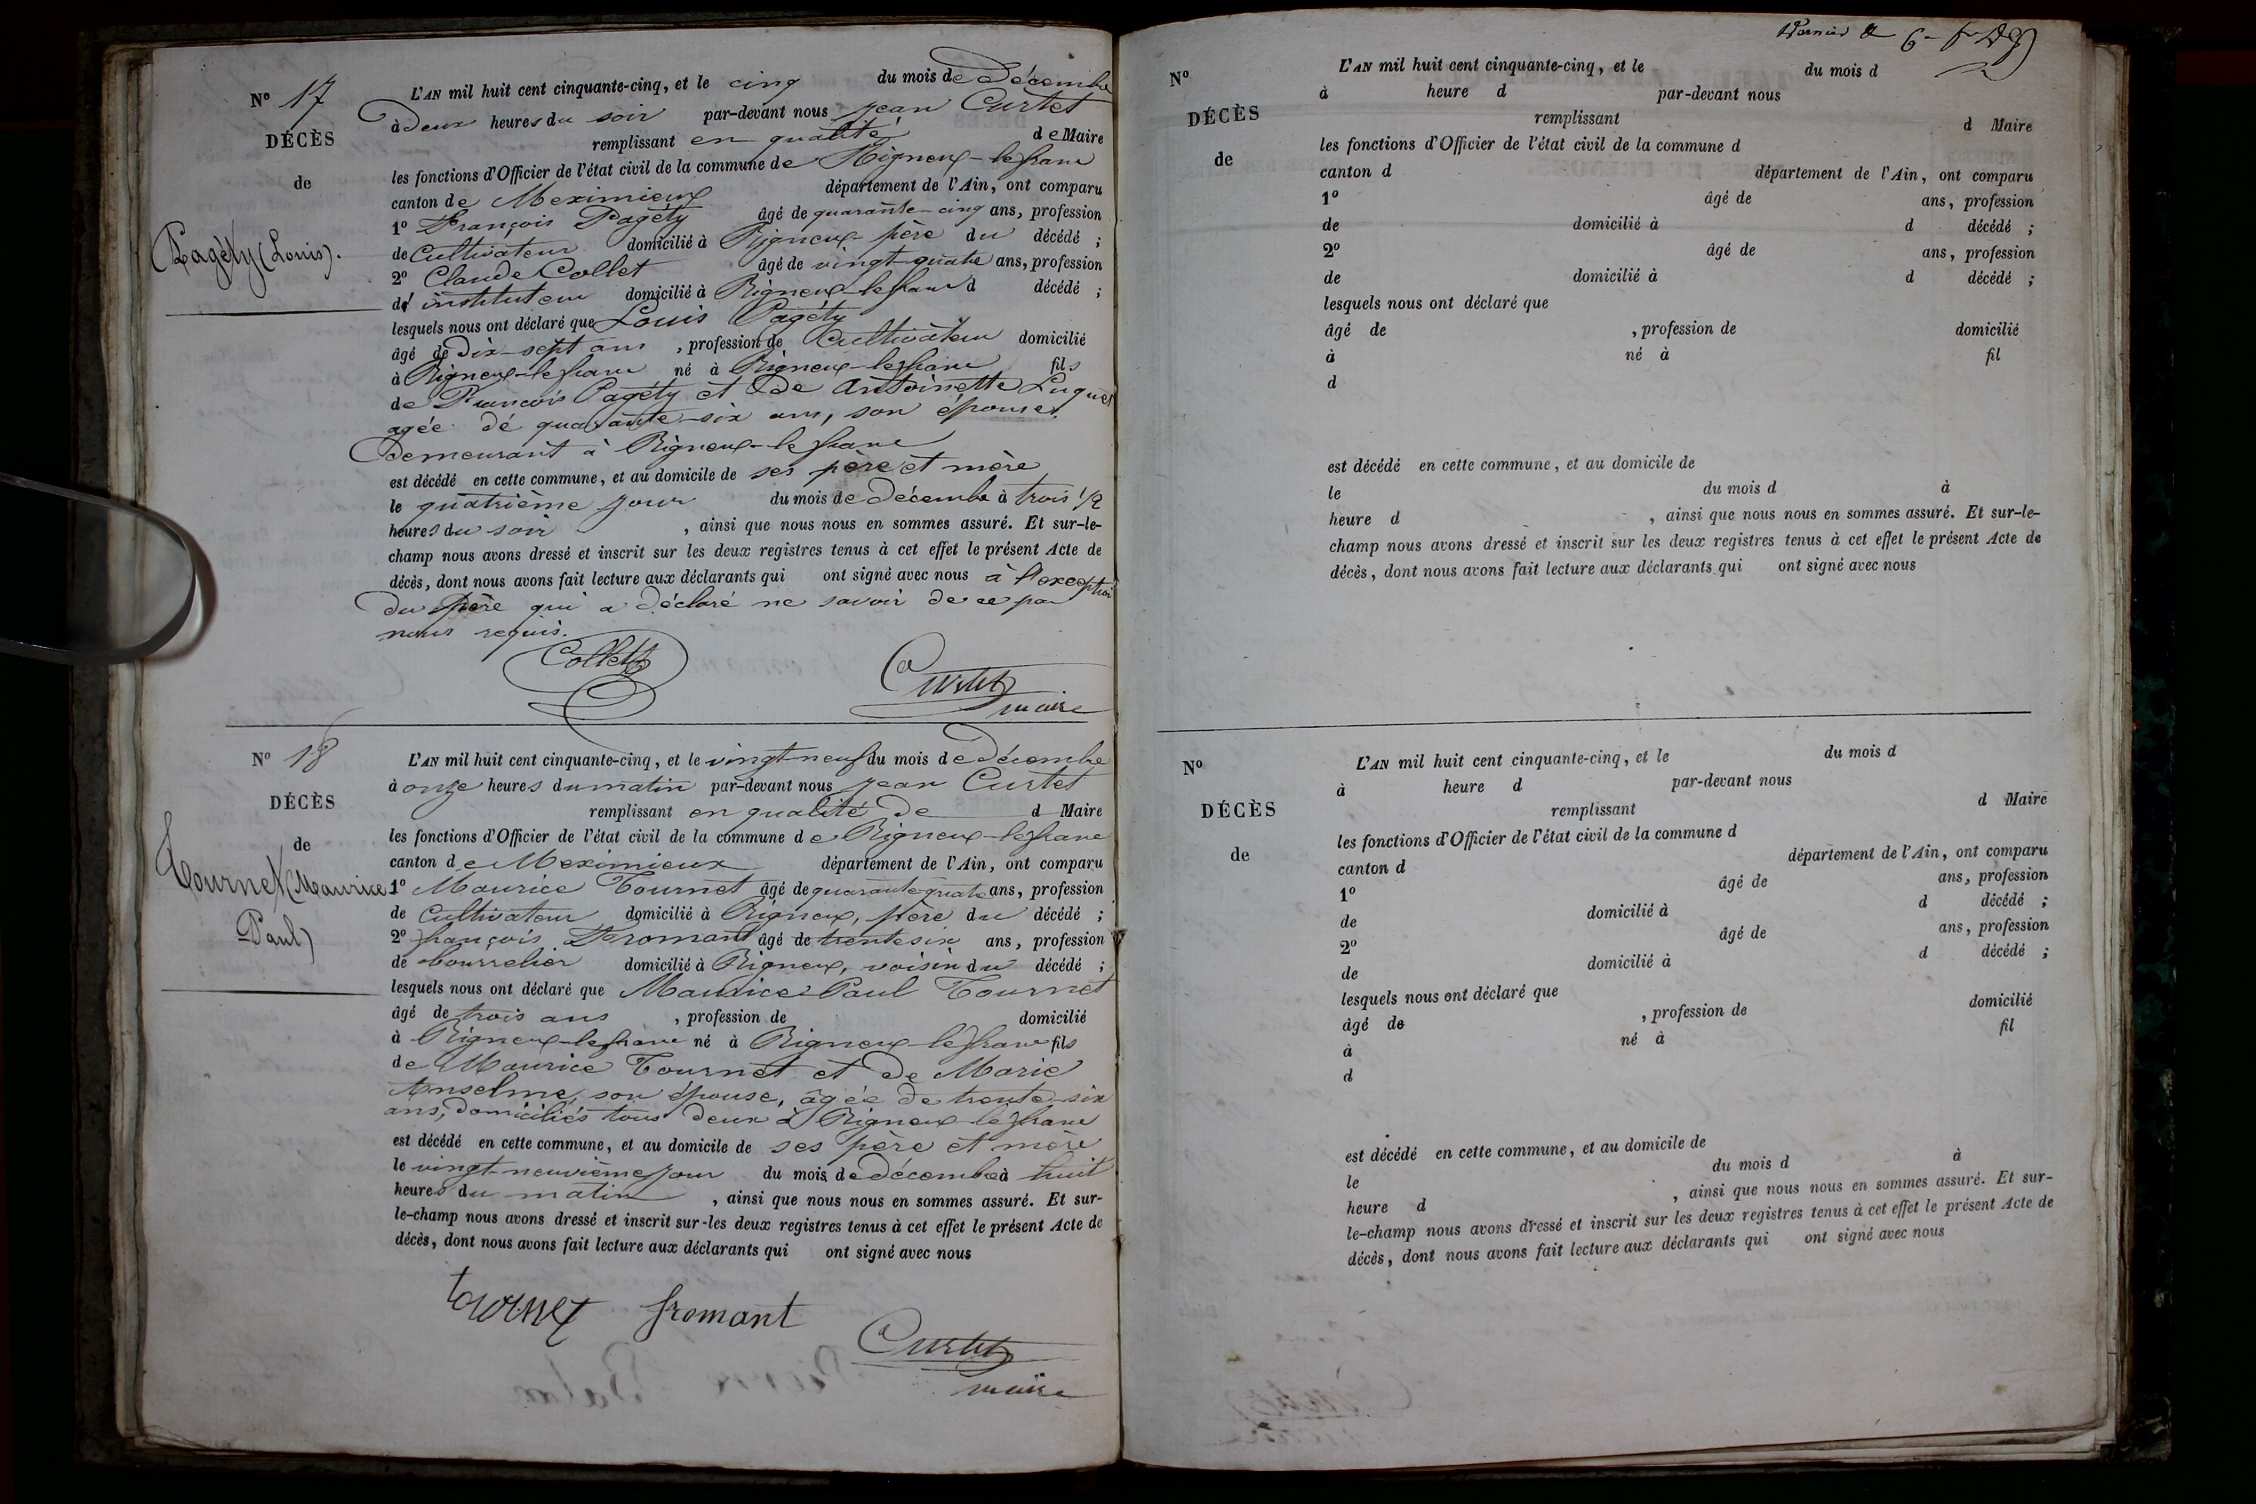 N° 17
DÉCÈS
de
Pagéty (Louis).
L'AN mil huit cent cinquante-cinq, et le cinq du mois de Décembre
à Deux heures du soir par-devant nous Jean Curtet
remplissant en qualité de Maire
les fonctions d'Officier de l'état civil de la commune de Rigneux-le-franc
canton de Meximieux département de l'Ain, ont comparu
1° François Pagéty âgé de quarante-cinq ans, profession
de Cultivateur domicilié à Rigneux père du décédé ;
2° Claude Collet âgé de vingt-quatre ans, profession
d' instituteur domicilié à Rigneux-le-franc d décédé ;
lesquels nous ont déclaré que Louis Pagéty
âgé de Dix-sept ans , profession de Cultivateur domicilié
à Rigneux-le-franc né à Rigneux-le-franc fils
de François Pagéty et de Antoinette
agée de quarante-six ans, son épouse
Demeurant à Rigneux-le-franc
est décédé en cette commune, et au domicile de ses père et mère
le quatrième jour du mois de Décembre à trois 1/2
heures du soir , ainsi que nous nous en sommes assuré. Et sur-le-
champ nous avons dressé et inscrit sur les deux registres tenus à cet effet le présent Acte de
décès, dont nous avons fait lecture aux déclarants qui ont signé avec nous à l'exception
du père qui a déclaré ne savoir de ce par
nous requis.
Collet
Curtet
maire
N° 18
DÉCÈS
de
Tournet (Maurice
Paul)
L'AN mil huit cent cinquante-cinq, et le vingt-neuf du mois de Décembre
à onze heures du matin par-devant nous Jean Curtet
remplissant en qualité de d Maire
les fonctions d'Officier de l'état civil de la commune de Rigneux-le-franc
canton de Meximieux département de l'Ain, ont comparu
1° Maurice Tournet âgé de quarante-quatre ans, profession
de Cultivateur domicilié à Rigneux, père du décédé ;
2° françois Fromant âgé de trente six ans, profession
de bourrelier domicilié à Rigneux, voisin du décédé ;
lesquels nous ont déclaré que Maurice Paul Tournet
âgé de trois ans , profession de domicilié
à Rigneux-le-franc né à Rigneux-le-franc fils
de Maurice Tournet et de Marie
Anselme, son épouse, âgée de trente-six
ans, domiciliés tous deux à Rigneux-le-franc
est décédé en cette commune, et au domicile de ses père et mère
le vingt-neuvième jour du mois de Décembre à huit
heures du matin , ainsi que nous nous en sommes assuré. Et sur-
le-champ nous avons dressé et inscrit sur-les deux registres tenus à cet effet le présent Acte de
décès, dont nous avons fait lecture aux déclarants qui ont signé avec nous
tournet fromant
Curtet
maire
N°
DÉCÈS
de
L'AN mil huit cent cinquante-cinq, et le du mois d
à heure d par-devant nous
remplissant d Maire
les fonctions d'Officier de l'état civil de la commune d
canton d département de l'Ain, ont comparu
1° âgé de ans, profession
de domicilié à d décédé ;
2° âgé de ans, profession
de domicilié à d décédé ;
lesquels nous ont déclaré que
âgé de , profession de domicilié
à né à fil
d
est décédé en cette commune, et au domicile de
le du mois d à
heure d , ainsi que nous nous en sommes assuré. Et sur-le-
champ nous avons dressé et inscrit sur les deux registres tenus à cet effet le présent Acte de
décès, dont nous avons fait lecture aux déclarants qui ont signé avec nous
N°
DÉCÈS
de
L'AN mil huit cent cinquante-cinq, et le du mois d
à heure d par-devant nous
remplissant d Maire
les fonctions d'Officier de l'état civil de la commune d
canton d département de l'Ain, ont comparu
1° âgé de ans, profession
de domicilié à d décédé ;
2° âgé de ans, profession
de domicilié à d décédé ;
lesquels nous ont déclaré que
âgé de , profession de domicilié
à né à fil
d
est décédé en cette commune, et au domicile de
le du mois d à
heure d , ainsi que nous nous en sommes assuré. Et sur-
le-champ nous avons dressé et inscrit sur les deux registres tenus à cet effet le présent Acte de
décès, dont nous avons fait lecture aux déclarants qui ont signé avec nous